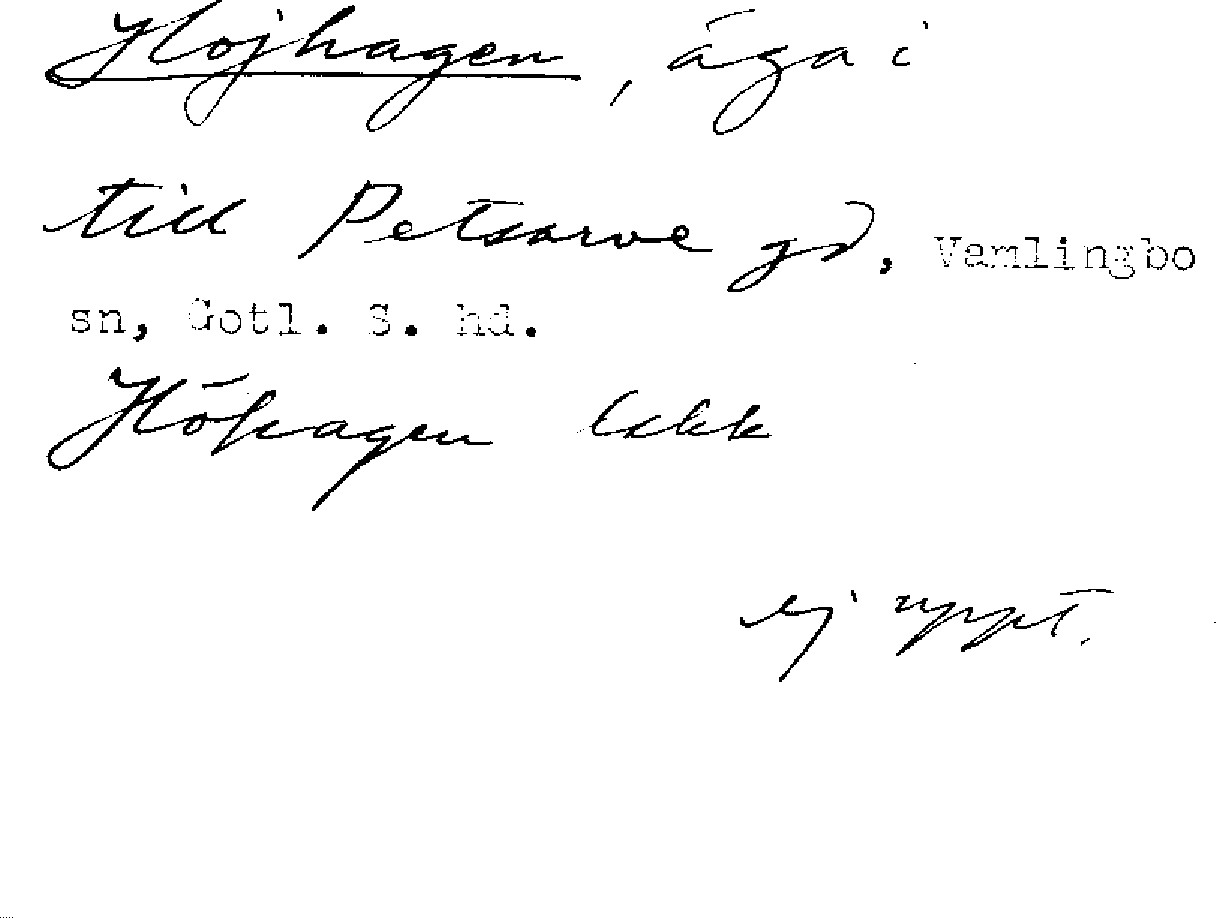 Höjhagen, äga i
till Petsarve gd, Vamlingbo
sn, Gotl. S. hd.
Höhagen
ej uppt.